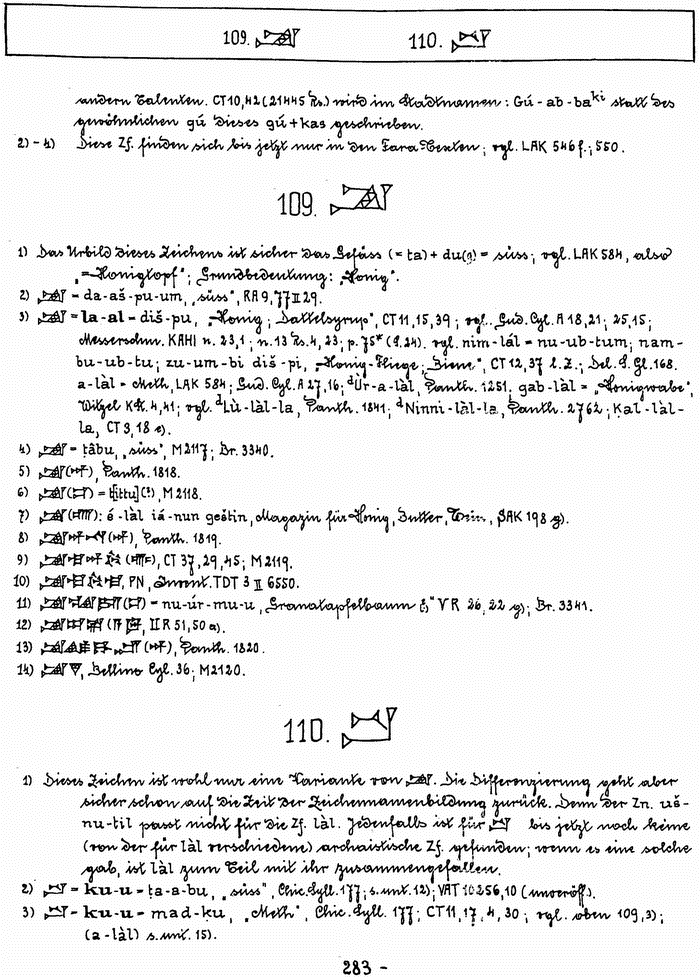 109. 110.
andern Talenten. CT 10,42 (21445 Rs.) wird im Stadtnamen: Gú-ab-ba^ki statt des
gewöhnlichen gú dieses gú+kas geschrieben.
2)-4) Diese Zf. finden sich bis jetzt nur in den Fara-Texten; vgl. LAK 546 f.; 550.
109.
1) Das Urbild dieses Zeichens ist sicher das Gefäss (= ta) + du(g) = süss; vgl. LAK 584, also
„=Honigtopf"; Grundbedeutung: „Honig".
2) = da-aš-pu-um, „süss", RA 9, 77 II 29.
3) = la-al = diš-pu, „Honig; Dattelsyrup", CT 11, 15, 39; vgl. Gud. Cyl. A 18, 21; 25, 15;
Messerschm. KAHI n. 23, 1; n. 13 Rs. 4, 23; p. 75* (S. 24). vgl. nim-làl = nu-ub-tum; nam-
bu-ub-tu; zu-um-bi diš-pi, „Honig-Fliege; Biene", CT 12, 37 l. Z.; Del. S. Gl. 168.
a-làl = Meth, LAK 584; Gud. Cyl. A 27, 16; ^dÙr-a-làl, Panth. 1251. gab-làl = „Honigwabe",
Witzel K4. 4, 41; vgl. ^dLù-làl-la, Panth. 1841; ^dNinni-làl-la, Panth. 2762; Ḳal-làl-
la, CT 3, 18 e).
4) = ṭâbu, „süss", M 2117; Br. 3340.
5) Panth. 1818.
6) = t[ittu] (?), M 2118.
7) : é-làl iá-nun geštin, Magazin für Honig, Butter, Wein, SAK 198 g).
8) Panth. 1819.
9) CT 37, 29, 45; M 2119.
10) PN, Invent. TDT 3 II 6550.
11) = nu-úr-mu-u, Granatapfelbaum V R 26, 22 g); Br. 3341.
12) II R 51, 50 a).
13) Panth. 1820.
14) Bellino Cyl. 36; M 2120.
110.
1) Dieses Zeichen ist wohl nur eine Variante von . Die Differenzierung geht aber
sicher schon auf die Zeit der Zeichennamenbildung zurück. Denn der Zn. uš-
nu-til passt nicht für die Zf. làl. Jedenfalls ist für bis jetzt noch keine
(von der für làl verschiedene) archaistische Zf. gefunden; wenn es eine solche
gab, ist làl zum Teil mit ihr zusammengefallen.
2) = ku-u = ṭa-a-bu, „süss", Chic. Syll. 177; s. unt. 12); VAT 10256, 10 (unveröff.).
3) = ku-u = mad-ku, „Meth", Chic. Syll. 177; CT 11, 17, 4, 30; vgl. oben 109, 3);
(a-làl) s. unt. 15).
283 -